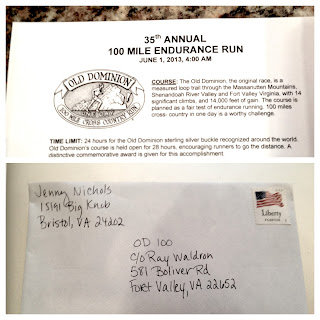 35th ANNUAL
100 MILE ENDURANCE RUN
JUNE 1, 2013, 4:00 AM
OLD DOMINION
100 MILE CROSS COUNTRY RUN
COURSE: The Old Dominion, the original race, is a
measured loop trail through the Massanutten Mountains,
Shenandoah River Valley and Fort Valley, Virginia, with 14
significant climbs, and 14,000 feet of gain. The course is
planned as a fair test of endurance running. 100 miles
cross- country in one day is a worthy challenge.
TIME LIMIT: 24 hours for the Old Dominion sterling silver buckle recognized around the world.
Old Dominion's course is held open for 28 hours, encouraging runners to go the distance. A
distinctive commemorative award is given for this accomplishment.
Jenny Nichols
15191 Big Knob
Bristol, VA 24202
Liberty
FOREVER
OD 100
C/o Ray Waldron
581 Boliver Rd
Fort Valley, VA 22652